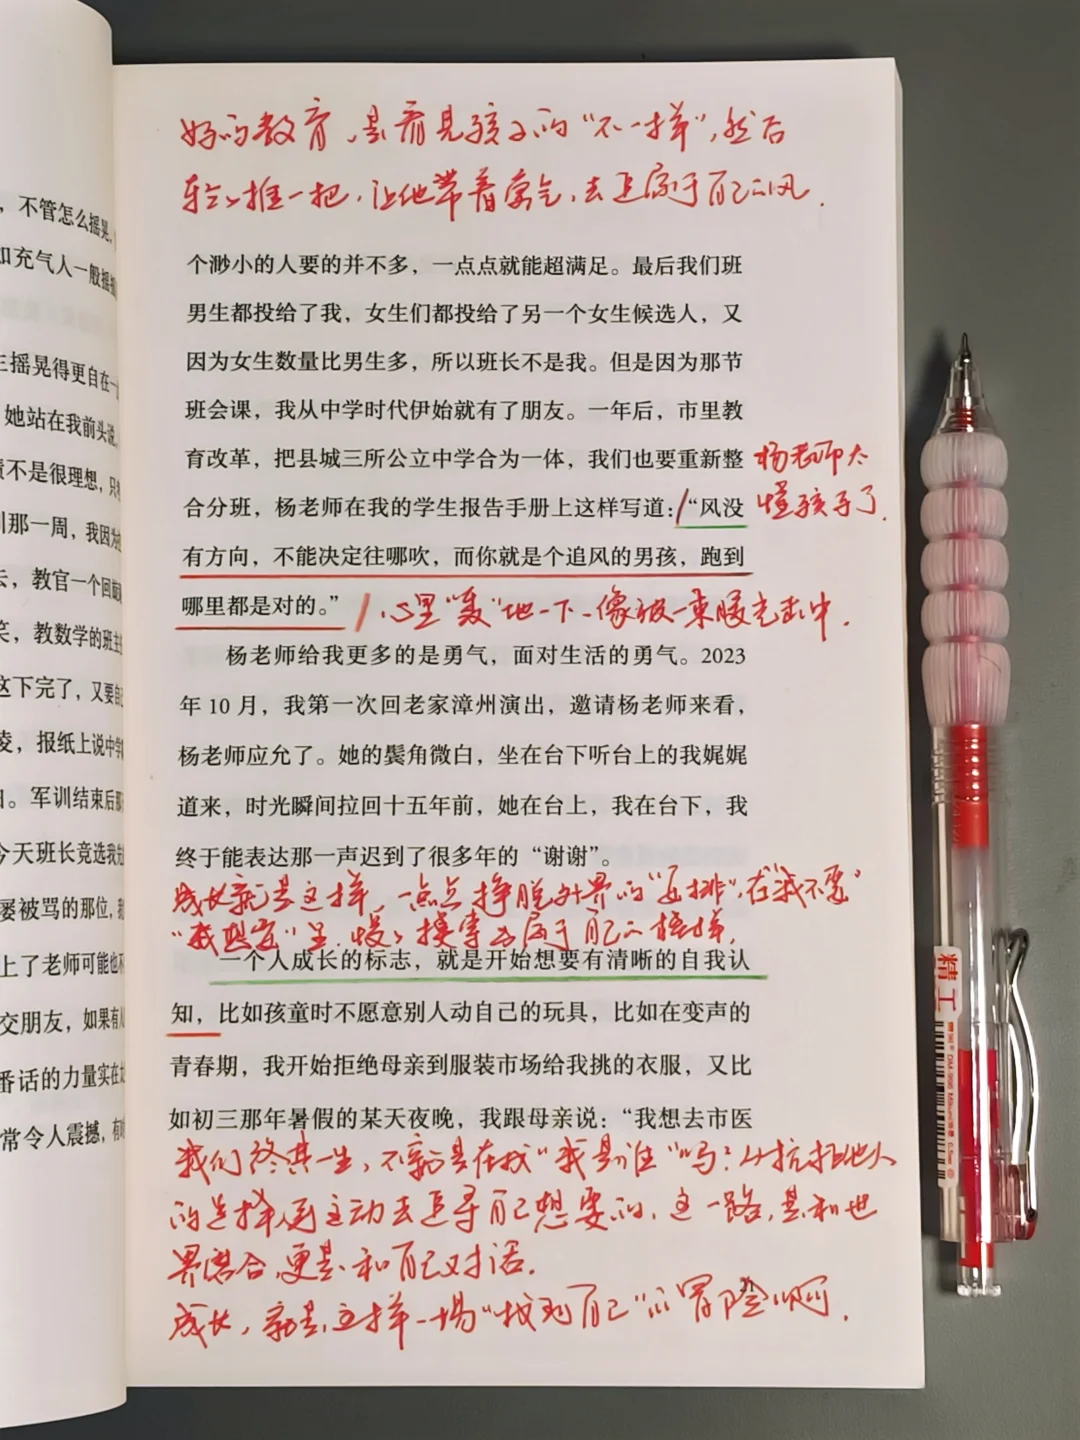 ，不管怎么摇晃，
如充气人一般摇摆
主摇晃得更自在一
她站在我前头说，
责不是很理想，只
训那一周，我因为
去，教官一个回
笑，教数学的班主
这下完了，又要自
凌，报纸上说中学
日。军训结束后那
今天班长竞选我先
屡被骂的那位，我
上了老师可能也不
交朋友，如果有人
番话的力量实在太
常令人震撼，有
好的教育，是看见孩子的“不一样”，然后
轻轻推一把，让他带着勇气，去追属于自己的风．
个渺小的人要的并不多，一点点就能超满足。最后我们班
男生都投给了我，女生们都投给了另一个女生候选人，又
因为女生数量比男生多，所以班长不是我。但是因为那节
班会课，我从中学时代伊始就有了朋友。一年后，市里教
育改革，把县城三所公立中学合为一体，我们也要重新整
合分班，杨老师在我的学生报告手册上这样写道：“风没
有方向，不能决定往哪吹，而你就是个追风的男孩，跑到
哪里都是对的。”
杨老师太
懂孩子了．
心里“轰”地一下－像被一束暖光击中．
杨老师给我更多的是勇气，面对生活的勇气。2023
年 10 月，我第一次回老家漳州演出，邀请杨老师来看，
杨老师应允了。她的鬓角微白，坐在台下听台上的我娓娓
道来，时光瞬间拉回十五年前，她在台上，我在台下，我
终于能表达那一声迟到了很多年的“谢谢”。
成长就是这样，一点点挣脱外界的“安排”，在“我不要”
“我想定”里．慢慢摸索出属于自己的模样．
一个人成长的标志，就是开始想要有清晰的自我认
知，比如孩童时不愿意别人动自己的玩具，比如在变声的
青春期，我开始拒绝母亲到服装市场给我挑的衣服，又比
如初三那年暑假的某天夜晚，我跟母亲说：“我想去市医
我们终其一生，不就是在找“我是谁”吗？从抗拒他人
的选择，再主动去追寻自己想要的．这一路，是和世
界磨合，更是和自己对话．
成长，就是这样一场“找到自己”的冒险啊．
精工